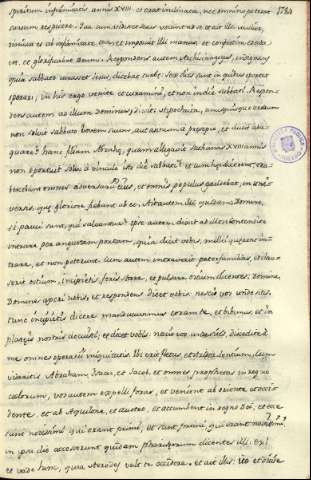 1784
spiritum infirmitatis annis XVIII. et erat inclinata, nec omnino poterat
sursum respicere. Quam cum videret Jesus vocavit ad se et ait illi mulier,
dimissa es ab infirmitate tua, et imposuit illi manum et confestim erecta
est, et glorificabat Deum. Respondens autem archisinagogus, indignans
quia sabbato curasset Jesus, dicebat turbe: Sex dies sunt in quibus oportet
operari, in his ergo venite et curamini, et non in die sabbati. Respon-
dens autem ad illum dominus, dixit: hypochrite, unusquisque vestrum
non solvit sabbato bovem suum, aut asinum a presepio, et ducit ada-
quare? hanc filiam Abrahe, quam alligavit Sathanas X et VIII annis
non oportuit solvi a vinculo isto die sabbati? et cum hec diceret, eru-
bescebant omnes adversarii eius, et omnis populus gaudebat, in univ-
versis, que gloriose fiebant ab eo. Ait autem illi quidam: Domine,
si pauci sunt, qui salvantur? ipse autem dixit ad illos: Contendite
intrare per angustam portam, quia dico vobis, multi querent in-
trare, et non poterunt. Cum autem intraverit paterfamilias, et clau-
serit ostium, incipietis foris stare, et pulsare ostium dicentes: Domine,
Domine aperi nobis, et respondens dicet vobis: nescio vos unde sitis.
Tunc incipietis dicere: manducavimus coram te, et bibimus, et in
plateis nostris docuisti, et dicet vobis: nescio vos unde sitis, discedite à
me omnes operarii iniquitatis. Ibi erit fletus et stridor dentium, cum
videritis Abraham, Isaac, et Jacob, et omnes prophetas in regno
celorum, vos autem expelli foras, et venient ab oriente, et occi-
dente, et ab Aquilone, et austro, et accumbent in regno Dei, et ecce
sunt novissimi qui erant primi, et sunt primi, qui erant novissimi,
in ipsa die accesserunt quidam phariseorum dicentes illi: Exi
et vade hinc, quia Herodes vult te occidere, et ait illis: ite et dicite